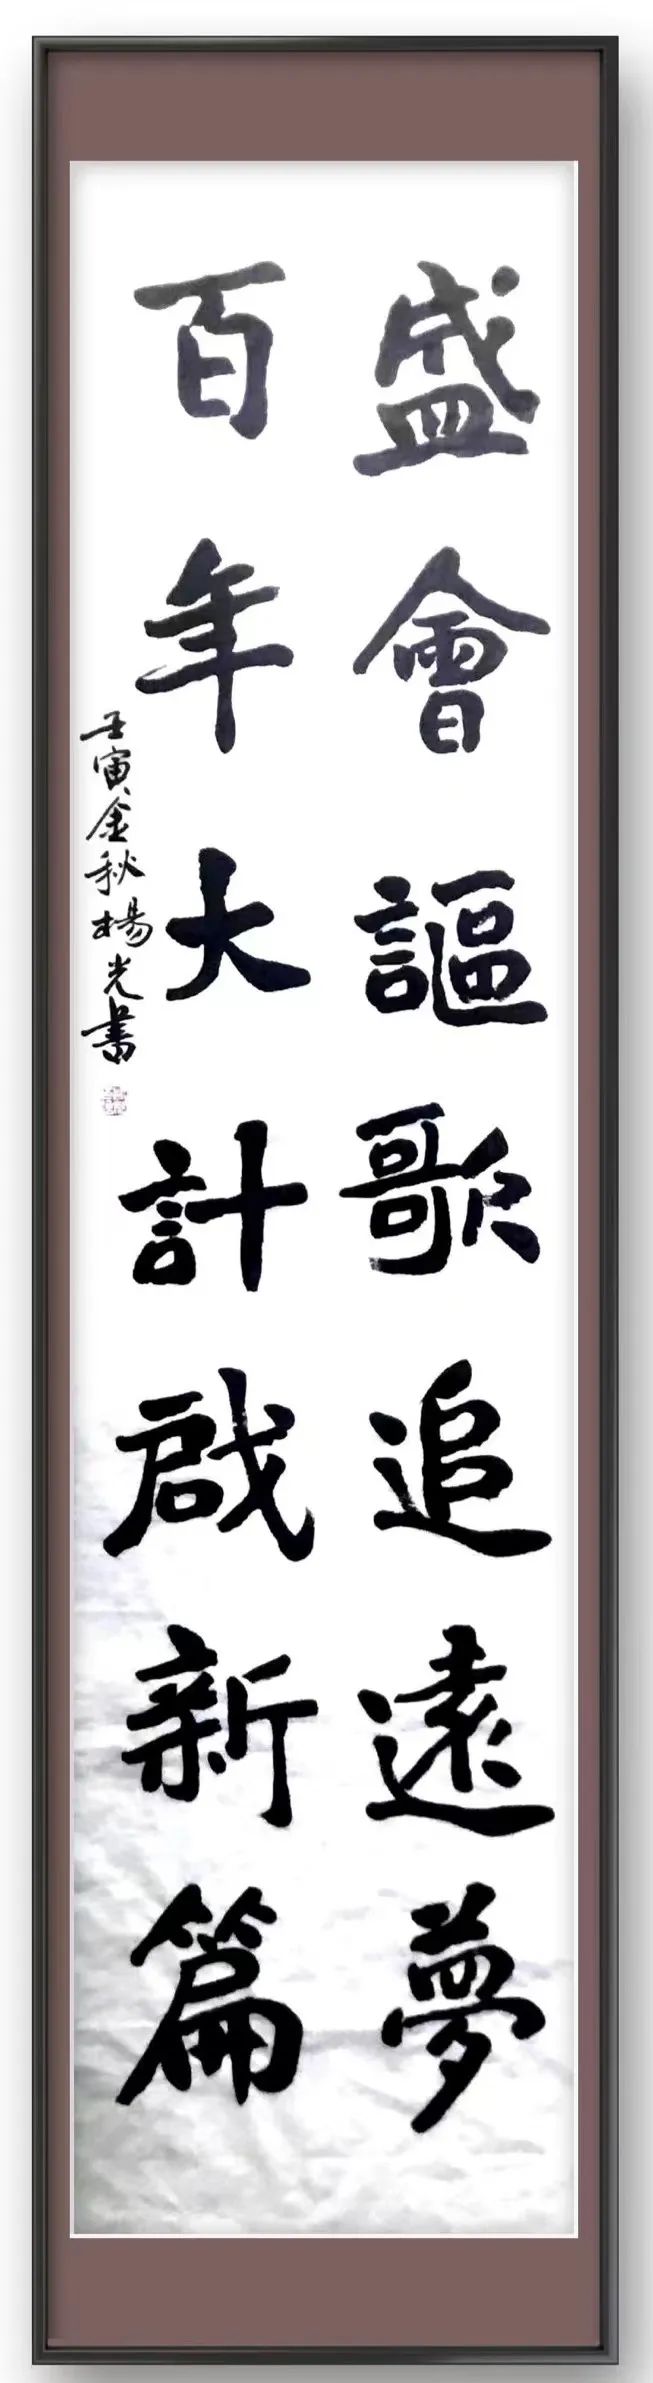 盛會謳歌追遠夢
百年大計啟新篇
壬寅金秋楊光書